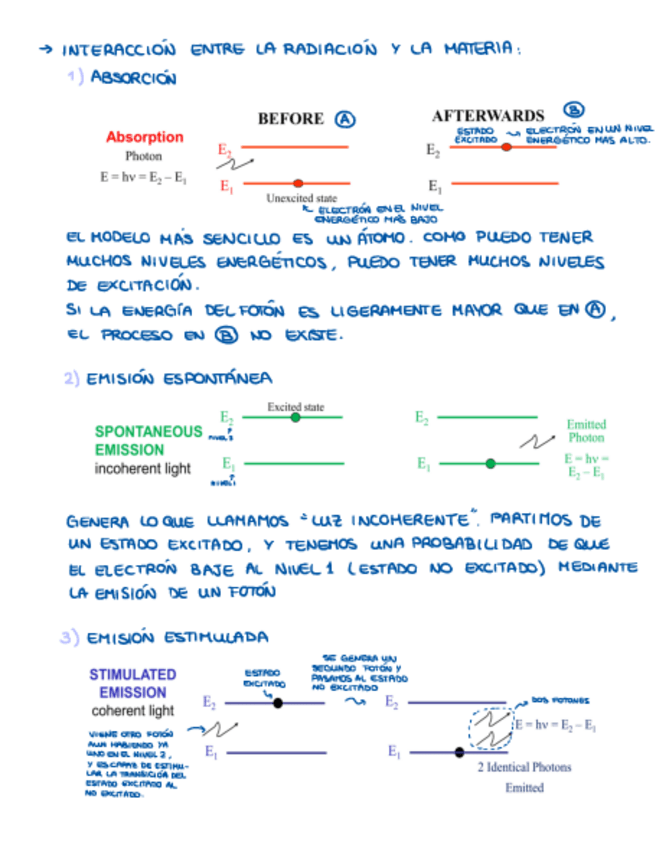 → INTERACCIÓN ENTRE LA RADIACIÓN Y LA MATERIA:
1) ABSORCIÓN
BEFORE Ⓐ
AFTERWARDS Ⓑ
Absorption
Photon
E = hν = E₂ – E₁
E₂
E₁
Unexcited state
ELECTRÓN EN EL NIVEL
ENERGÉTICO MÁS BAJO
ESTADO
EXCITADO
ELECTRÓN EN UN NIVEL
ENERGÉTICO MÁS ALTO.
E₂
E₁
EL MODELO MÁS SENCILLO ES UN ÁTOMO. COMO PUEDO TENER
MUCHOS NIVELES ENERGÉTICOS, PUEDO TENER MUCHOS NIVELES
DE EXCITACIÓN.
SI LA ENERGÍA DEL FOTÓN ES LIGERAMENTE MAYOR QUE EN Ⓐ,
EL PROCESO EN Ⓑ NO EXISTE.
2) EMISIÓN ESPONTÁNEA
SPONTANEOUS
EMISSION
incoherent light
Excited state
E₂
NIVEL 2
E₁
NIVEL 1
E₂
E₁
Emitted
Photon
E = hν =
E₂ – E₁
GENERA LO QUE LLAMAMOS "LUZ INCOHERENTE". PARTIMOS DE
UN ESTADO EXCITADO, Y TENEMOS UNA PROBABILIDAD DE QUE
EL ELECTRÓN BAJE AL NIVEL 1 (ESTADO NO EXCITADO) MEDIANTE
LA EMISIÓN DE UN FOTÓN
3) EMISIÓN ESTIMULADA
STIMULATED
EMISSION
coherent light
VIENE OTRO FOTÓN
AUN HABIENDO YA
UNO EN EL NIVEL 2,
Y ES CAPAZ DE ESTIMU-
LAR LA TRANSICIÓN DEL
ESTADO EXCITADO AL
NO EXCITADO.
ESTADO
EXCITADO
E₂
E₁
SE GENERA UN
SEGUNDO FOTÓN Y
PASAMOS AL ESTADO
NO EXCITADO
E₂
E₁
DOS FOTONES
E = hν = E₂ – E₁
2 Identical Photons
Emitted